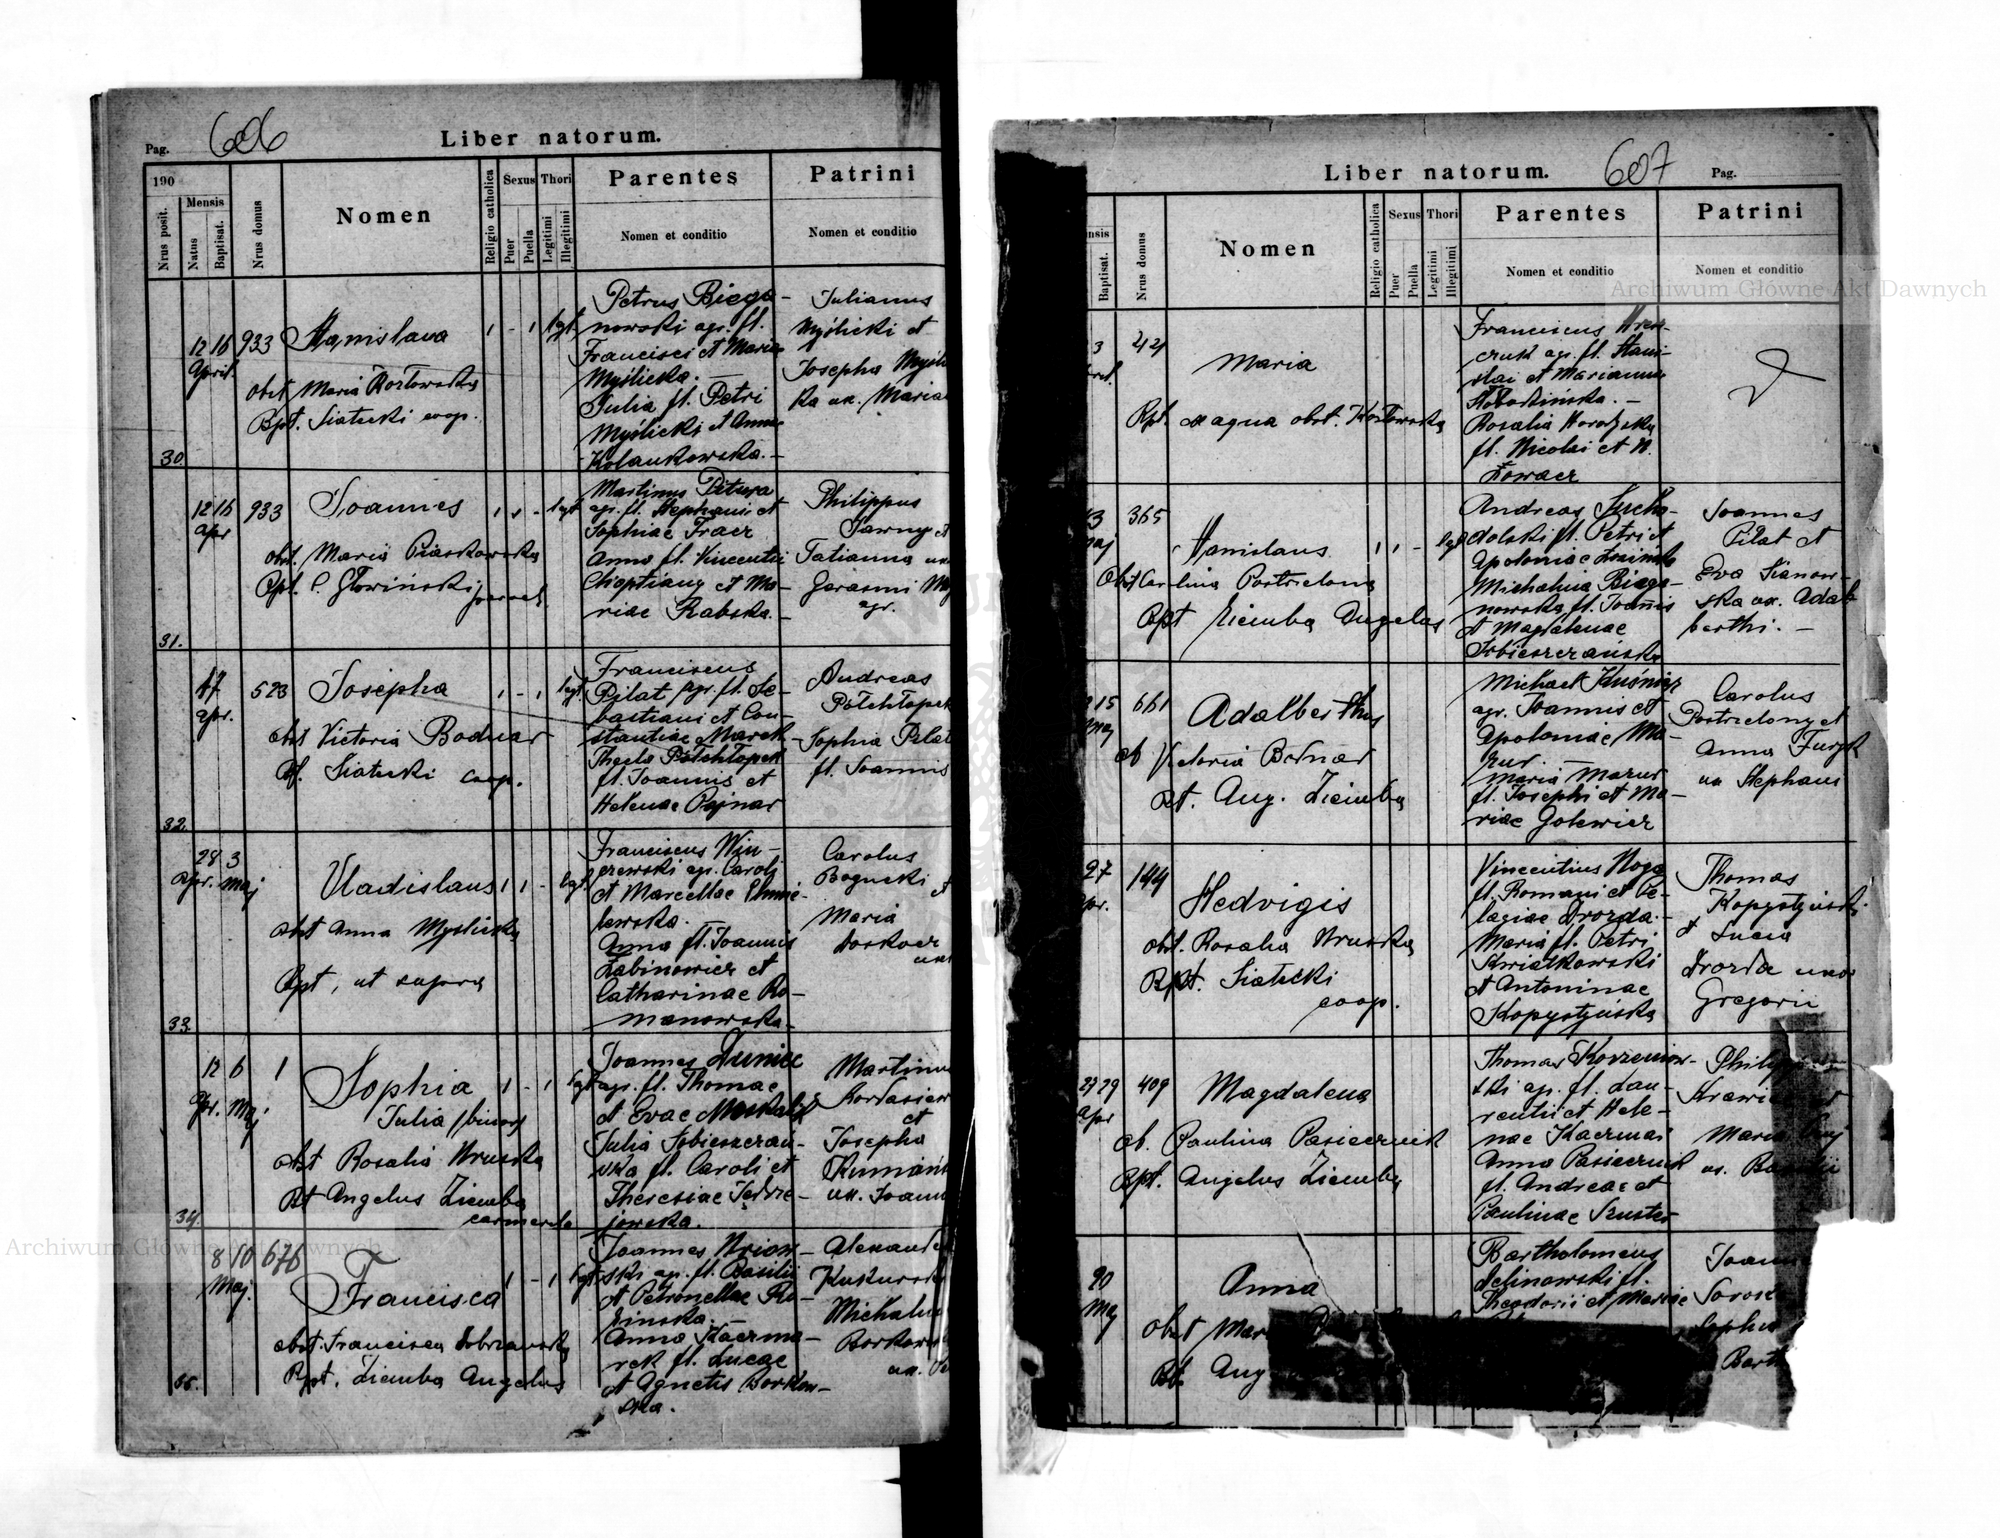 Pag.
606
Liber natorum.
190
Nrus posit.
Mensis
Natus
Baptisat.
Nrus domus
Nomen
Religio catholica
Sexus
Puer
Puella
Thori
Legitimi
Illegitimi
Parentes
Nomen et conditio
Patrini
Nomen et conditio
30.
12 16 933
April.
Stanislava
1 - 1 lgt.
obst Maria Kozłowska
Bpt. Siatecki coop.
Petrus Biega-
nowski agr. fl.
Francisci et Maria
Myślicka. -
Julia fl. Petri
Myślicki et Anna
Kolankowska. -
Julianus
Myślicki et
Josepha Myśli
ka ux. Maria
31.
12 16 933
Apr
Joannes
1 1 - lgt
obst. Maria Piaskowska
Bpt. C. Głowiński
Martinus Pitura
agr. fl. Stephani et
Sophiae Fracz
Anna fl. Vincentii
Choptiany et Ma-
riae Rabska. -
Philippus
Tarny et
Tatianna ux
Garasmi
agr.
32.
17 523
apr.
Josepha
1 - 1 lgt.
obst Victoria Bodnar
Bt. Siatecki coop.
Franciscus
Pilat agr. fl. Se-
bastiani et Con-
stantiae Marek
Thecla Półchłopek
fl. Joannis et
Helenae Pajnar
Andreas
Półchłopek
Sophia Pilat
fl. Joannis
33.
28 3
Apr. Maj
Vladislaus
1 1 - lgt.
obst Anna Myślicka
Bpt, ut supra
Franciscus Win-
czewski agr. Caroli
et Marcellae Chmie-
lewska. -
Anna fl. Joannis
Łabinowicz et
Catharinae Ro-
manowska -
Carolus
Bogucki et
Maria
ux
34.
12 6 1
Apr. Maj
Sophia
Julia /binom/
1 - 1 lgt
obst Rosalia Hruszka
Bt Angelus Ziemba
carmerela
Joannes Duniec
agr. fl. Thomae
et Evae Moskal
Julia Sobieszczań-
ska fl. Caroli et
Theresiae Jedrze-
jowska.
Martinus
et
Josepha
ux. Joann
35.
8 10 676
Maj.
Francisca
1 - 1 lgt
obst. Francisca Dobrzańska
Bpt. Ziemba Angelus
Joannes
ski agr. fl. Basilii
et Petronellae Ro-
zinska. -
Anna Kaczma-
rek fl. Lucae
et Agnetis Borkow-
ska.
Alexander
Michalina
Borkow
ux.
Liber natorum.
607
Pag.
nsis
Baptisat.
Nrus domus
Nomen
Religio catholica
Sexus
Puer
Puella
Thori
Legitimi
Illegitimi
Parentes
Nomen et conditio
Patrini
Nomen et conditio
3 42
Maria
Bpt. ex aqua obst. Kozłowska
Franciscus
agr. fl. Stani-
slai et Marianna
Rosalia Horodyska
fl. Nicolai et N.
Łowacz
13 365
Maj
Stanislaus
1 1 - lgt
Obst Carolina Postrzelona
Bpt Ziemba Angelus
Andreas Sucho-
dolski fl. Petri et
Apoloniae
Michalina Biega-
nowska fl. Joannis
et Magdalenae
Sobieszczańska
Joannes
Pilat et
Eva Sianow-
ska ux. Adal-
berthi. -
15 661
Maj
Adalberthus
ob Victoria Bodnar
Bt. Aug. Ziemba
Michael Kuśnierz
agr. Joannis et
Apoloniae Ma-
zur. -
Maria Mazur
fl. Josephi et Ma-
riae Golewicz
Carolus
Postrzelony et
Anna Furyk
ux Stephani
27 144
Apr.
Hedvigis
obst. Rosalia Hruszka
Bpt. Siatecki
coop.
Vincentius Noga
fl. Romani et Pe-
lagiae Drozda. -
Maria fl. Petri
Kwiatkowski
et Antoninae
Kopystyńska
Thomas
Kopystyński
et Lucia
Drozda uxor
Gregorii
27 29 409
Apr
Magdalena
ob. Paulina Pasiecznik
Bpt. Angelus Ziemba
Thomas Korzeniow-
ski agr. fl. Lau-
rentii et Hele-
nae Kaczmar
Anna Pasiecznik
fl. Andreae et
Paulinae Szuster
Philip
Maria
ux. Basilii
20
Maj
Anna
obst Mar
Bt. Aug
Bartholomeus
Zelinowski fl.
Theodorii et Mariae
Joann
Sophia
Barth
Archiwum Główne Akt Dawnych
Archiwum Główne Akt Dawnych